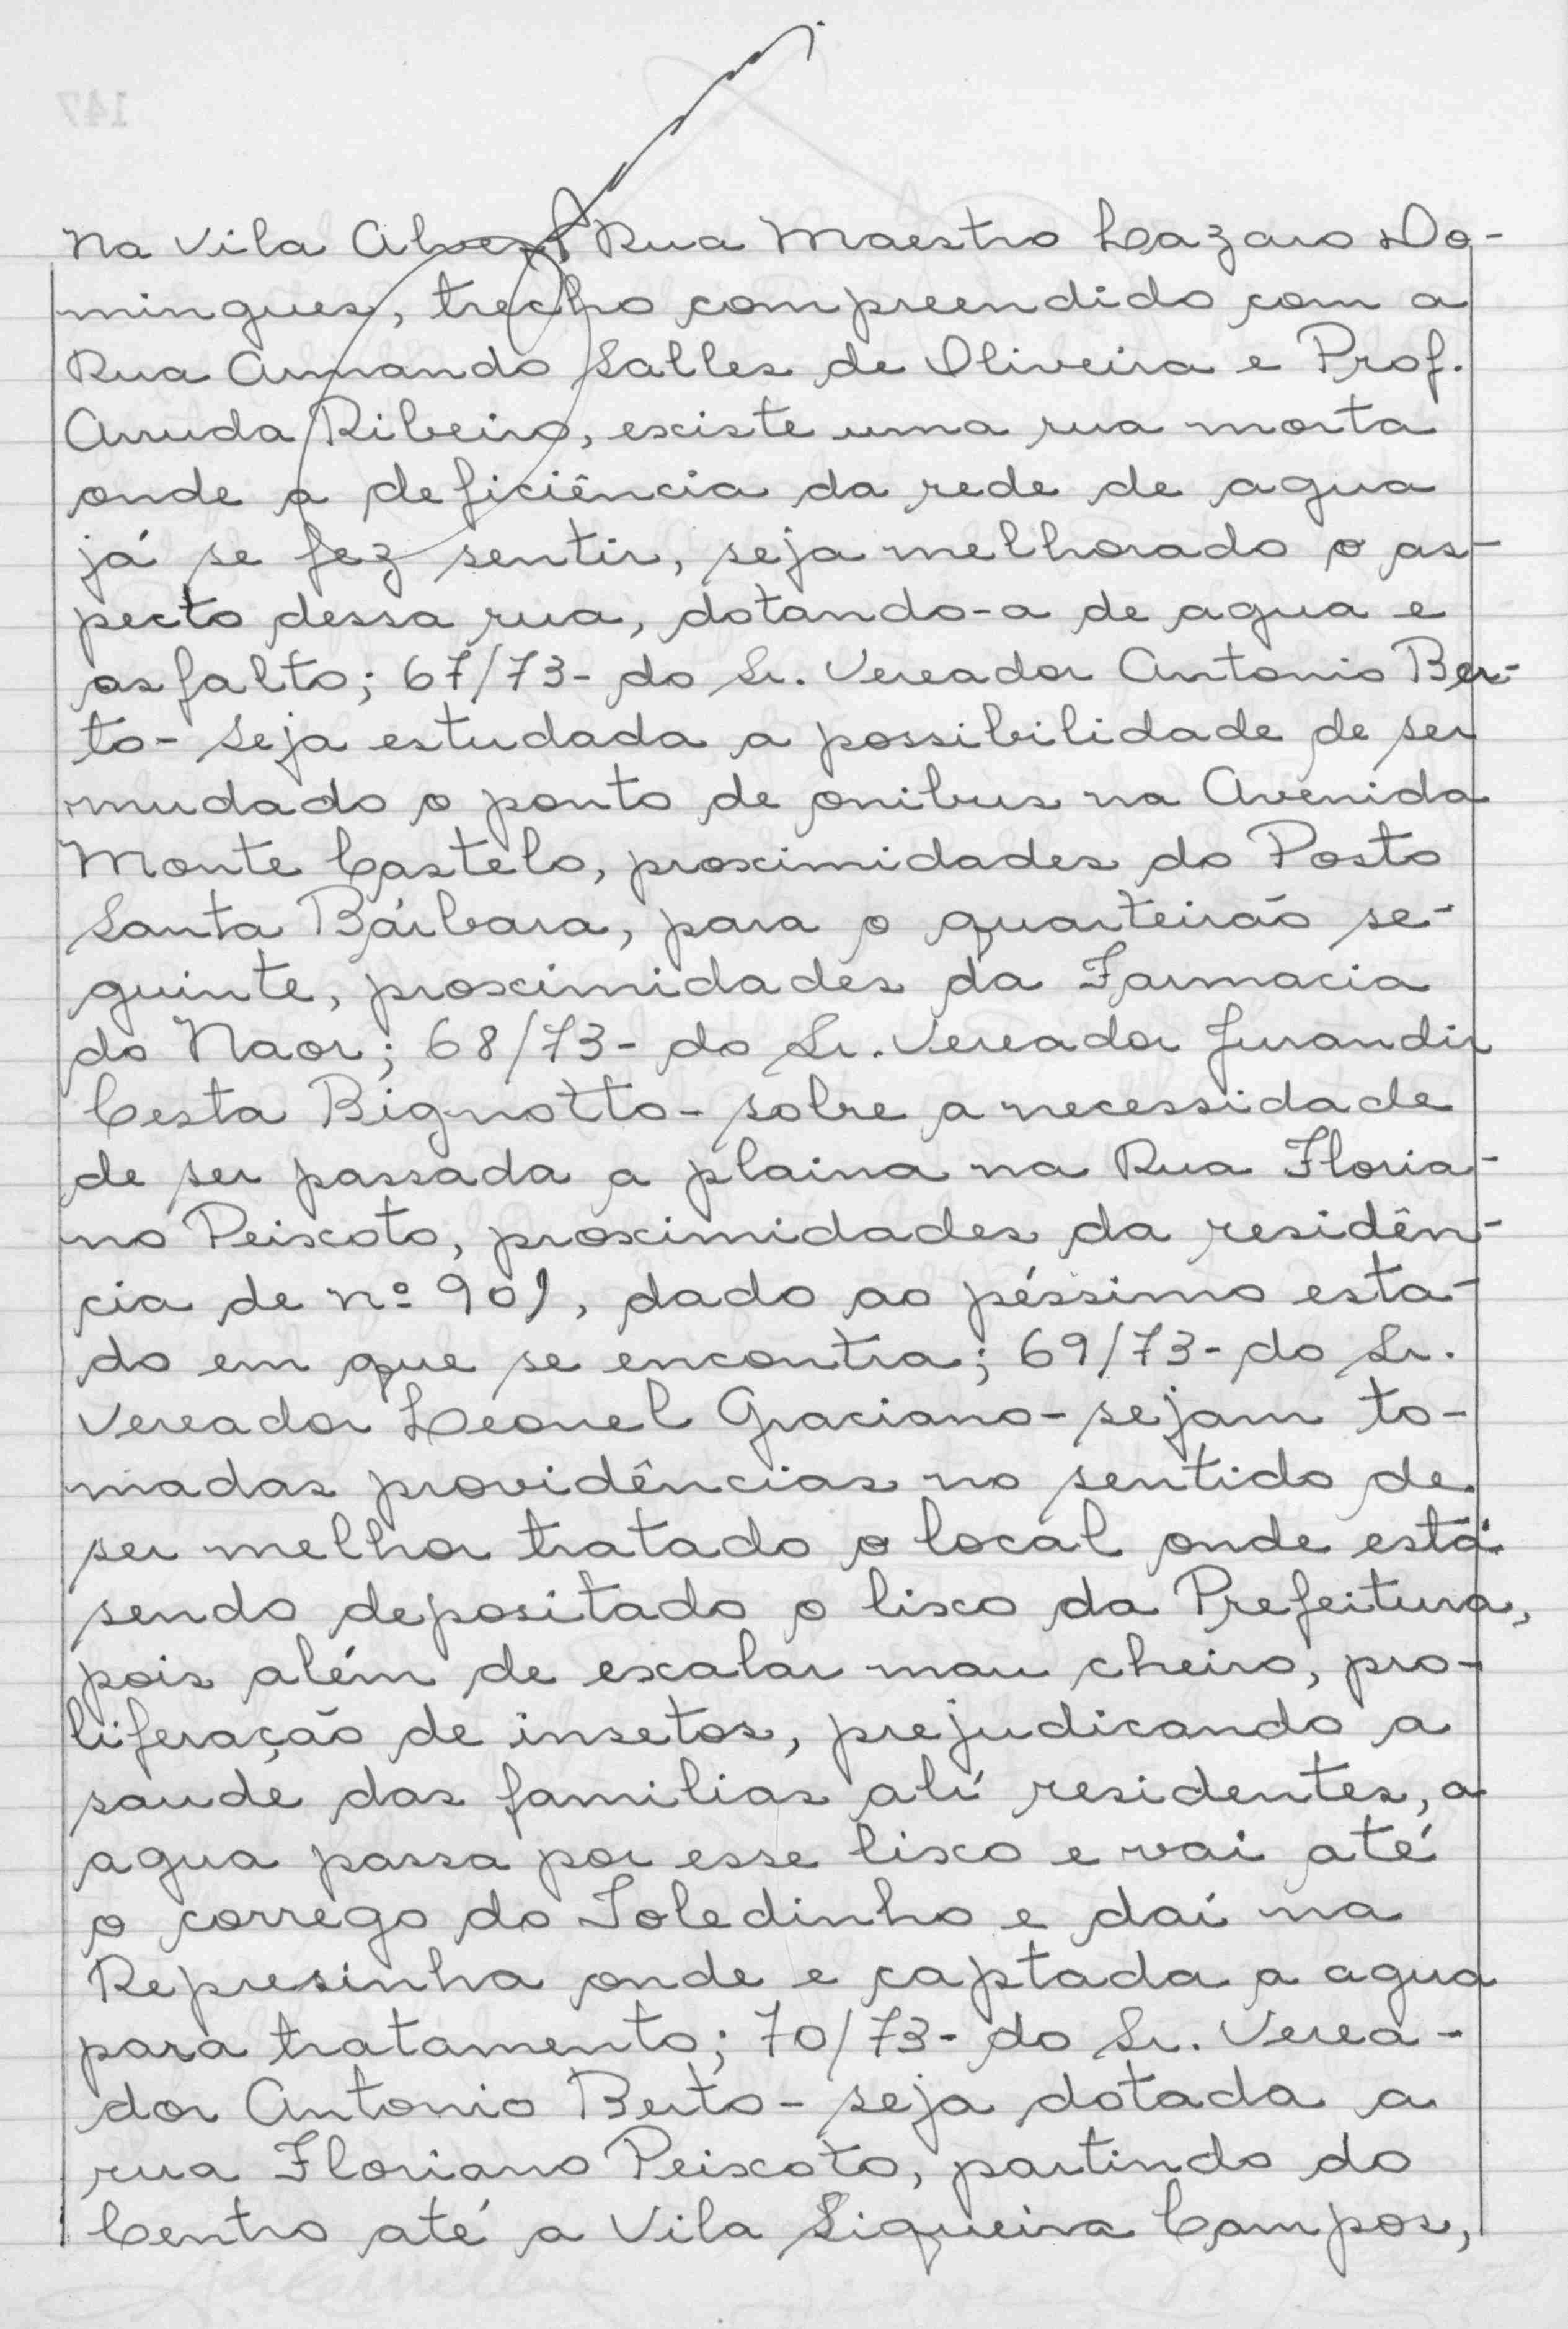 Na Vila Alves, Rua Maestro Lazaro Do-
mingues, trecho compreendido com a
Rua Armando Salles de Oliveira e Prof.
Arruda Ribeiro, existe uma rua morta
onde a deficiência da rede de agua
já se fez sentir, seja melhorado o as-
pecto dessa rua, dotando-a de agua e
asfalto; 67/73- do Sr. Vereador Antonio Ber-
to- seja estudada a possibilidade de ser
mudado o ponto de onibus na Avenida
Monte Castelo, proximidades do Posto
Santa Bárbara, para o quarteirão se-
guinte, proximidades da Farmacia
do Naor; 68/73- do Sr. Vereador Jurandir
Cesta Bignotto- sobre a necessidade
de ser passada a plaina na Rua Floria-
no Peixoto, proximidades da residên-
cia de nº 901, dado ao péssimo esta-
do em que se encontra; 69/73- do Sr.
Vereador Leonel Graciano- sejam to-
madas providências no sentido de
ser melhor tratado o local onde está
sendo depositado o lixo da Prefeitura,
pois além de exalar mau cheiro, pro-
liferação de insetos, prejudicando a
saude das familias alí residentes, a
agua passa por esse lixo e vai até
o corrego do Toledinho e daí na
Represinha onde e captada a agua
para tratamento; 70/73- do Sr. Verea-
dor Antonio Berto- seja dotada a
rua Floriano Peixoto, partindo do
Centro até a Vila Siqueira Campos,